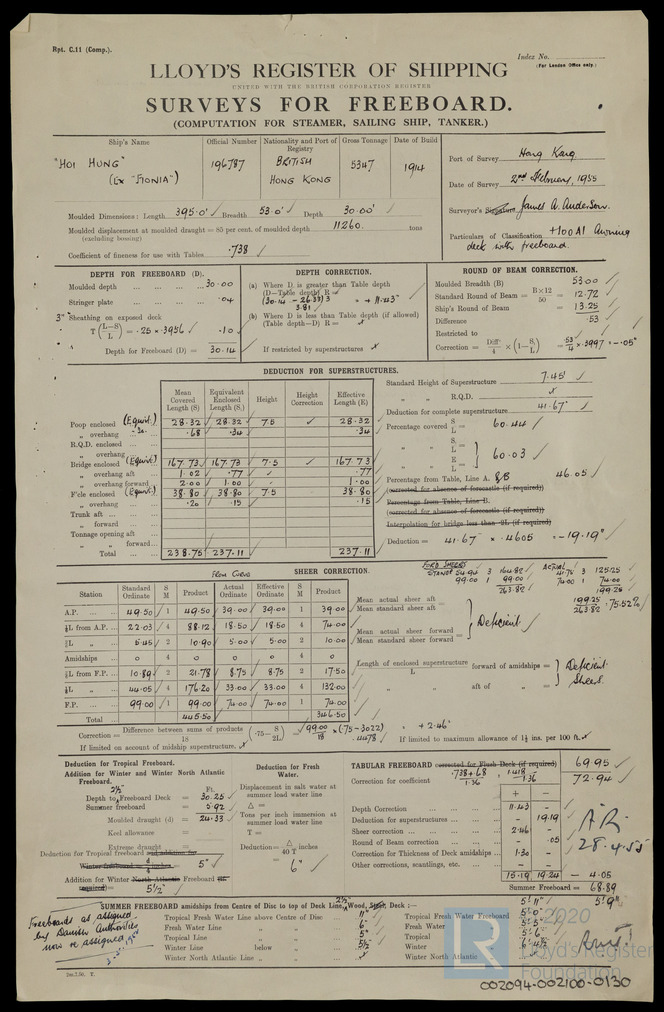 Rpt. C.11 (Comp.).
Index No.
(For London Office only.)
LLOYD'S REGISTER OF SHIPPING
UNITED WITH THE BRITISH CORPORATION REGISTER
SURVEYS FOR FREEBOARD.
(COMPUTATION FOR STEAMER, SAILING SHIP, TANKER.)
Ship's Name Official Number Nationality and Port of Registry Gross Tonnage Date of Build
"HOI HUNG" 196787 BRITISH 5347 1914
(EX "FIONIA") HONG KONG
Port of Survey Hong Kong
Date of Survey 2nd February, 1955
Surveyor's Signature James A. Anderson.
Particulars of Classification +100 A1 Awning
deck with freeboard.
Moulded Dimensions: Length 395.0' Breadth 53.0' Depth 30.00'
Moulded displacement at moulded draught = 85 per cent. of moulded depth 11260. tons
(excluding bossing)
Coefficient of fineness for use with Tables .738
DEPTH FOR FREEBOARD (D).
Moulded depth 30.00
Stringer plate .04
3" Sheathing on exposed deck
T (L-S/L) = .25 × .3956 .10
Depth for Freeboard (D) = 30.14
DEPTH CORRECTION.
(a) Where D. is greater than Table depth
(D—Table depth) R =
(30.14 - 26.33) 3 = + 11.43"
3.81
(b) Where D is less than Table depth (if allowed)
(Table depth—D) R = x
If restricted by superstructures x
ROUND OF BEAM CORRECTION.
Moulded Breadth (B) 53.00
Standard Round of Beam = B×12/50 = 12.72
Ship's Round of Beam = 13.25
Difference .53
Restricted to
Correction = Diff/4 × (1 - S/L) = .53/4 × .3997 = -.05"
DEDUCTION FOR SUPERSTRUCTURES.
Mean Covered Length (S) Equivalent Enclosed Length (S.) Height Height Correction Effective Length (E)
Poop enclosed (Equiv.) 28.32 28.32 7.5 28.32
„ overhang .68 .34 .34
R.Q.D. enclosed
„ overhang
Bridge enclosed (Equiv.) 167.73 167.73 7.5 167.73
„ overhang aft 1.02 .77 .77
„ overhang forward 2.00 1.00 1.00
F'cle enclosed (Equiv.) 38.80 38.80 7.5 38.80
„ overhang .20 .15 .15
Trunk aft
„ forward
Tonnage opening aft
„ „ forward
Total 238.75 237.11 237.11
Standard Height of Superstructure 7.45'
„ „ R.Q.D. x
Deduction for complete superstructure 41.67"
Percentage covered S/L = 60.44
„ „ S./L =
„ „ E/L = 60.03
Percentage from Table, Line A. & B 46.05
(corrected for absence of forecastle (if required))
Percentage from Table, Line B.
(corrected for absence of forecastle (if required))
Interpolation for bridge less than ·2L (if required)
Deduction = 41.67 × .4605 = -19.19"
From Curve SHEER CORRECTION.
Station Standard Ordinate S M Product Actual Ordinate Effective Ordinate S M Product
A.P. 49.50 1 49.50 39.00 39.00 1 39.00
⅙L from A.P. 22.03 4 88.12 18.50 18.50 4 74.00
⅓L „ 5.45 2 10.90 5.00 5.00 2 10.00
Amidships 0 4 0 0 0 4 0
⅓L from F.P. 10.89 2 21.78 8.75 8.75 2 17.50
⅙L „ 44.05 4 176.20 33.00 33.00 4 132.00
F.P. 99.00 1 99.00 74.00 74.00 1 74.00
Total 445.50 346.50
FORD SHEERS
STAND? 54.94 3 164.82
99.00 1 99.00
263.82
ACTUAL
41.75 3 125.25
74.00 1 74.00
199.25
199.25/263.82 = 75.52%
Mean actual sheer aft
Mean standard sheer aft =
Mean actual sheer forward
Mean standard sheer forward =
Deficient
Length of enclosed superstructure/L forward of amidships =
„ „ aft of „ =
Deficient Sheers.
Correction = Difference between sums of products/18 (.75 - S/2L) = 99.00/18 × (.75 - .3022) = + 2.46"
.4478
If limited on account of midship superstructure. x
If limited to maximum allowance of 1½ ins. per 100 ft. x
Deduction for Tropical Freeboard.
Addition for Winter and Winter North Atlantic Freeboard.
Ft.
2½"
Depth to Freeboard Deck = 30.25
Summer freeboard = 5.92
Moulded draught (d) = 24.33
Keel allowance =
Extreme draught =
Deduction for Tropical freeboard and addition for
Winter freeboard = d/4 = 5"
Addition for Winter North Atlantic Freeboard (if required) = 5½"
Deduction for Fresh Water.
Displacement in salt water at summer load water line
Δ =
Tons per inch immersion at summer load water line
T =
Deduction = Δ/40 T inches
= 6"
TABULAR FREEBOARD corrected for Flush Deck (if required) 69.95
Correction for coefficient .738 + .68/1.36 1.418/1.36 72.94
+ -
Depth Correction 11.43 -
Deduction for superstructures - 19.19
Sheer correction 2.46 -
Round of Beam correction - .05
Correction for Thickness of Deck amidships 1.30 -
Other corrections, scantlings, etc. - -
15.19 19.24 - 4.05
Summer Freeboard = 68.89
28-4-55
SUMMER FREEBOARD amidships from Centre of Disc to top of Deck Line, 2½" Wood, Steel, Deck :— 5' 9"
Tropical Fresh Water Line above Centre of Disc 11"
Fresh Water Line „ „ 6"
Tropical Line „ „ 5"
Winter Line below „ 5½"
Winter North Atlantic Line „ „ x
Tropical Fresh Water Freeboard
Fresh Water „
Tropical „
Winter „ 6' 4½"
Winter North Atlantic „ x
Freeboards as assigned
by Danish Authorities
now re assigned.
2m.7.50. T.
LR
© 2020
Lloyd's Register
Foundation
002094-002100-0130